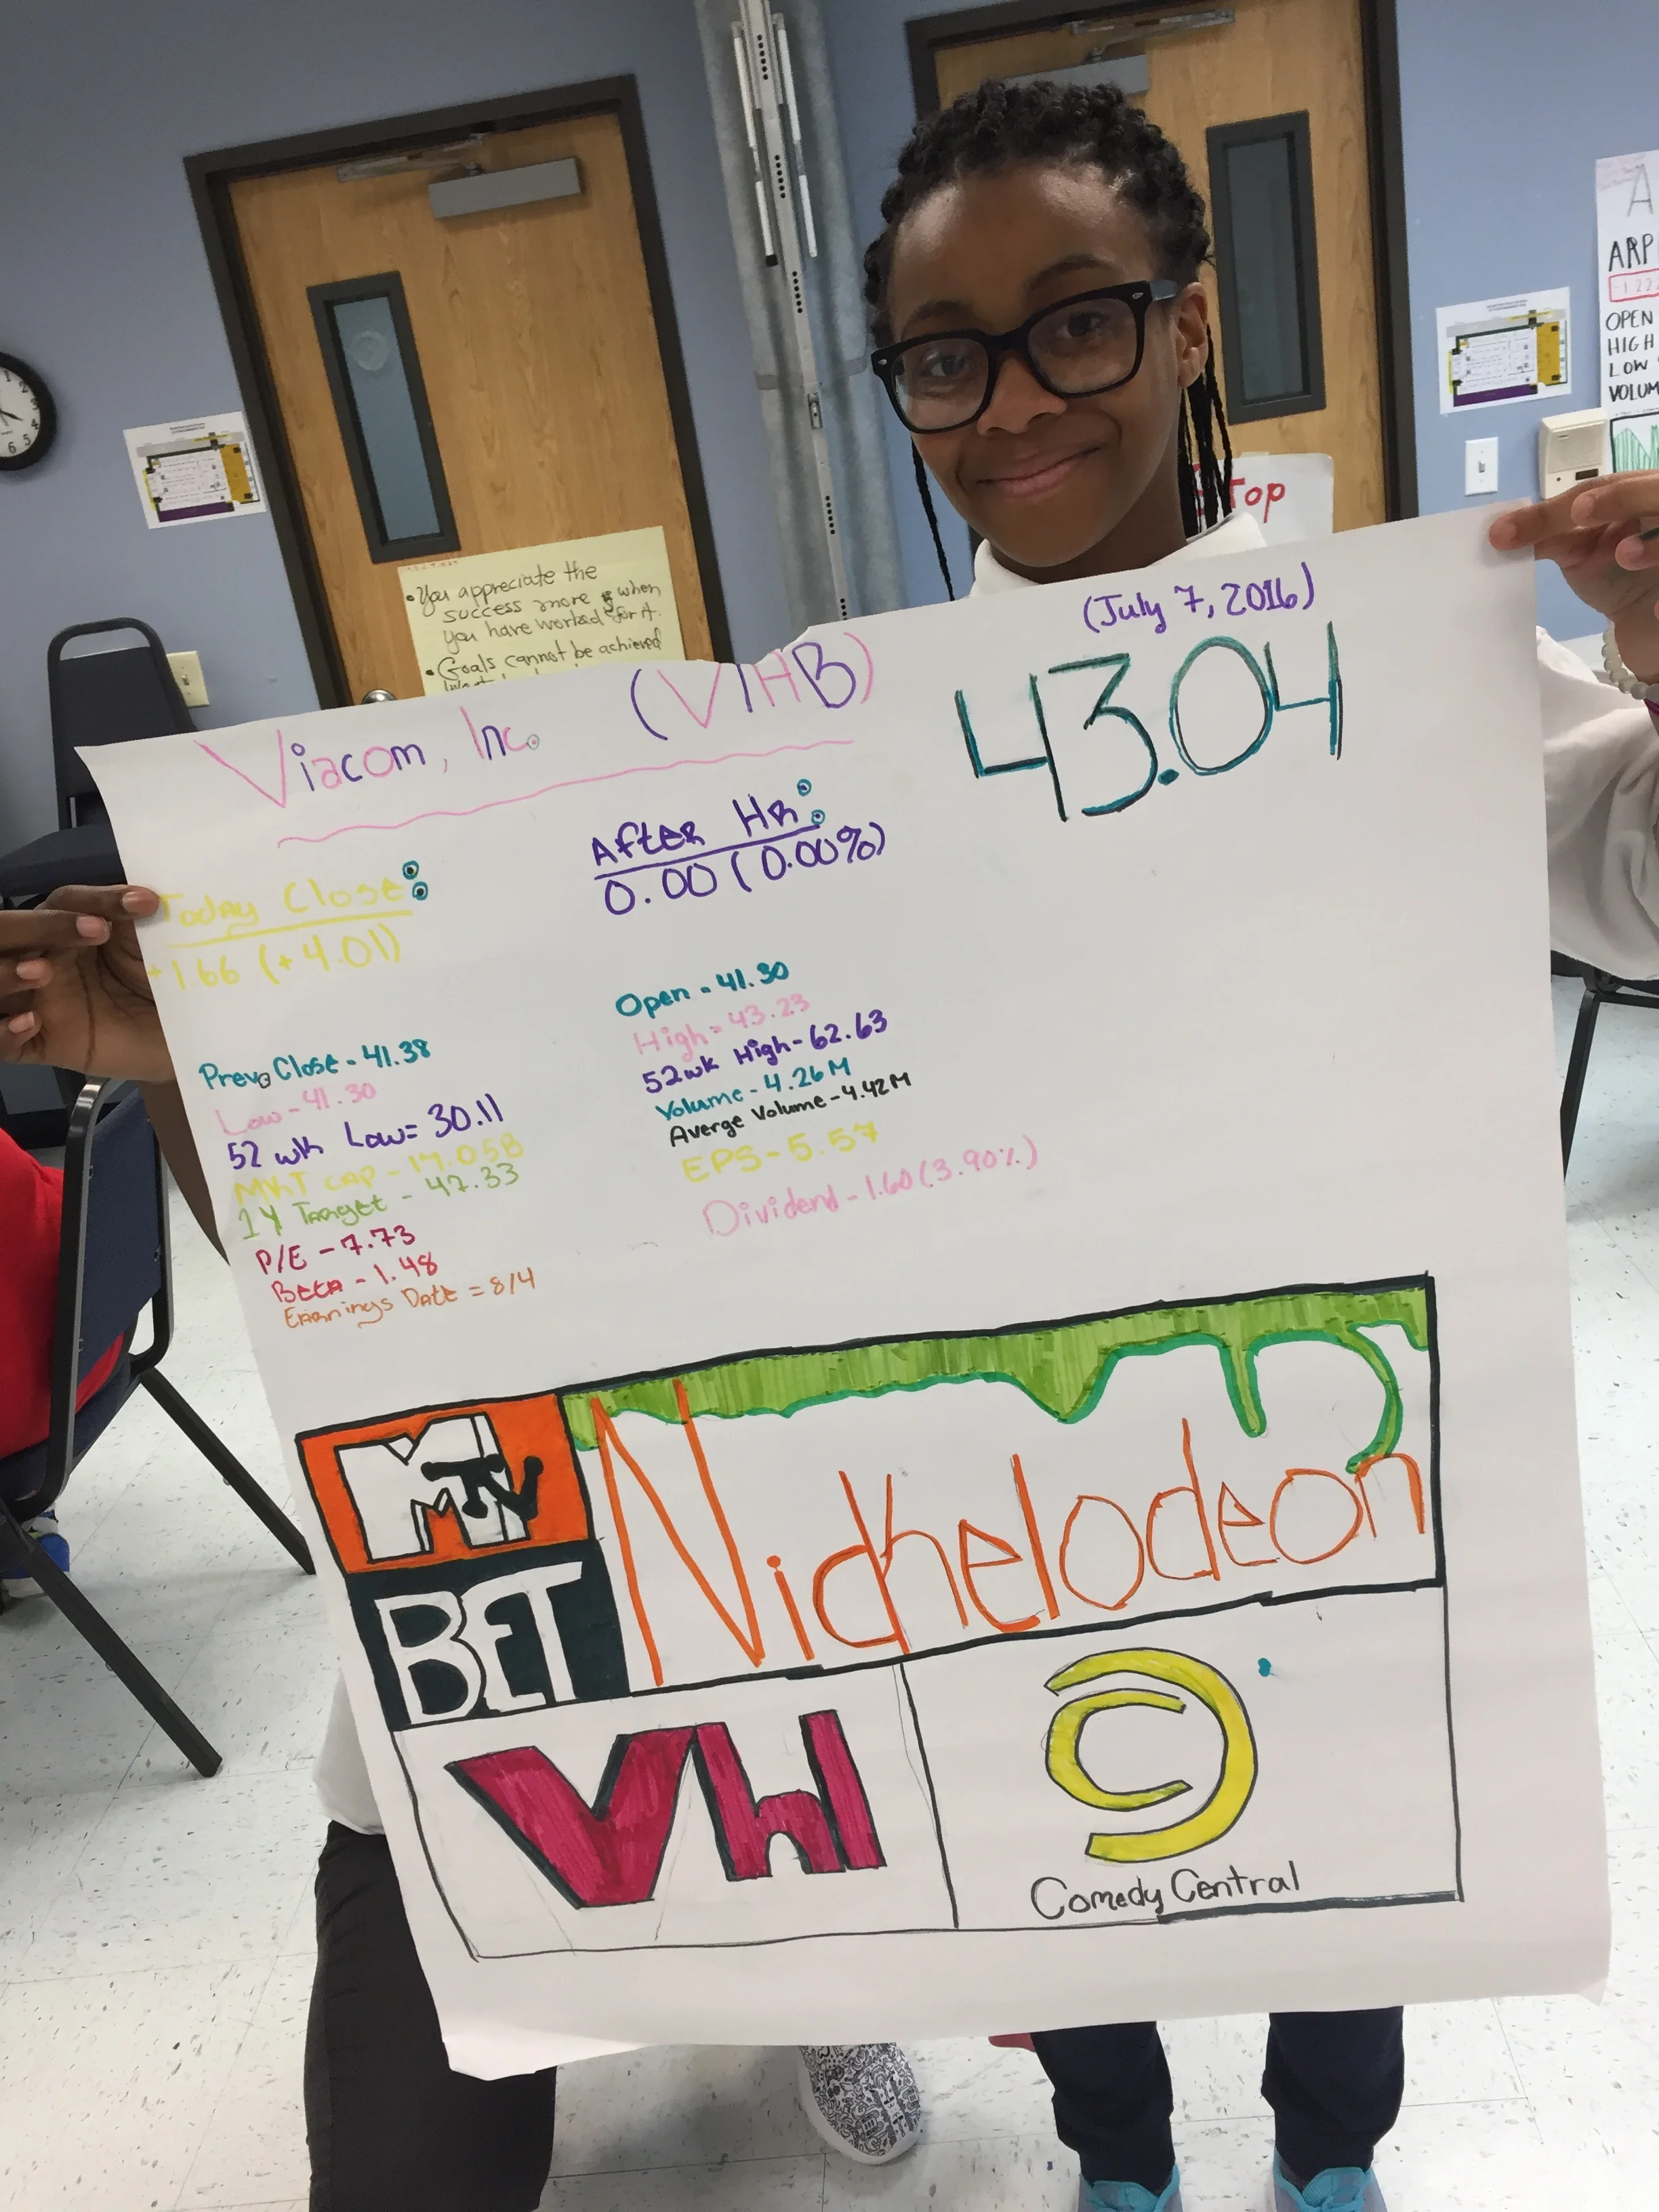 • You appreciate the
success more when
you have worked for it.
• Goals cannot be achieved
Stop
A
ARP
OPEN
HIGH
LOW
VOLUM
(July 7, 2016)
Viacom, Inc. (VIAB)
43.04
After HR:
0.00 (0.00%)
Today Close:
+1.66 (+4.01)
Prev. Close - 41.38
Low - 41.30
52 wk Low = 30.11
MKT CAP - 17.05B
1Y Target - 47.33
P/E - 7.73
Beta - 1.48
Earnings Date = 8/4
Open - 41.30
High = 43.23
52wk High - 62.63
Volume - 4.26M
Averge Volume - 4.42M
EPS - 5.57
Dividend - 1.60 (3.90%)
MTV
Nickelodeon
BET
Vh1
Comedy Central